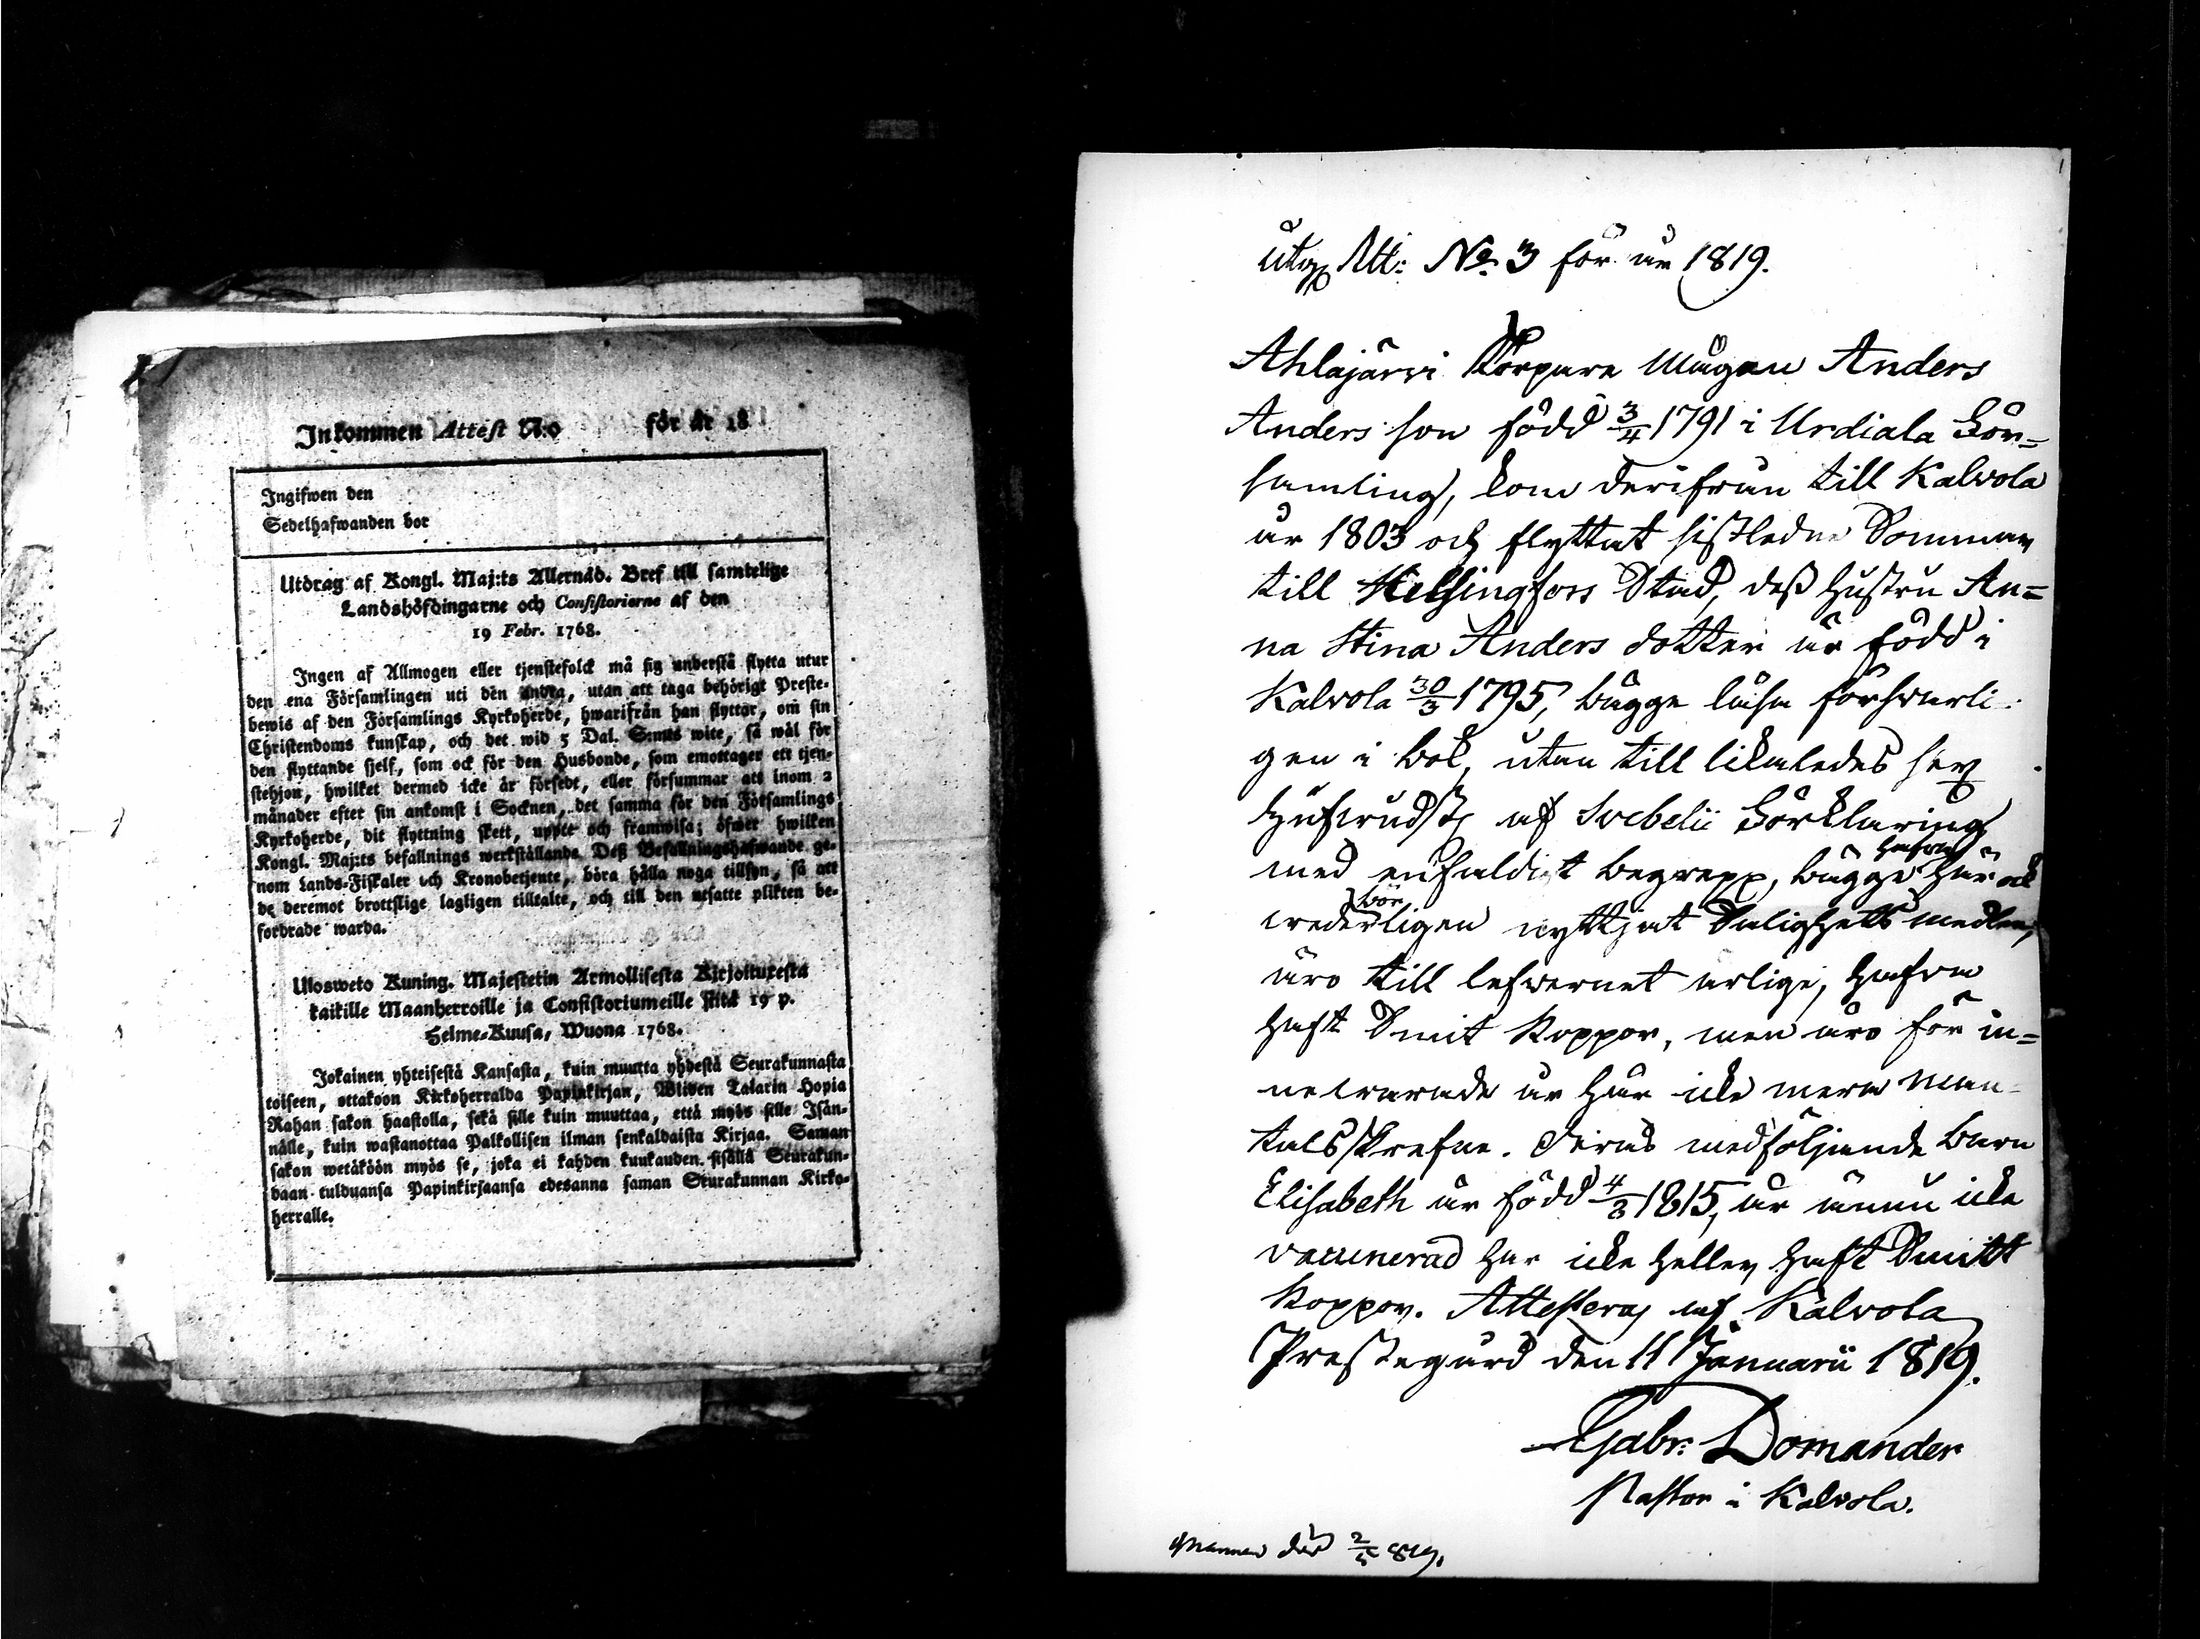 Inkommen Attest N:o för år 18
Ingifwen den
Sedelhafwanden bor
Utdrag af Kongl. Maj:ts Allernåd. Bref till samtelige
Landshöfdingarne och Consistorierne af den
19 Febr. 1768.
Ingen af Allmogen eller tjenstefolck må sig understå flytta utur
den ena Församlingen uti den andra, utan att taga behörigt Preste-
bewis af den Församlings Kyrkoherde, hwarifrån han flyttar, om sin
Christendoms kunskap, och det wid 5 Dal. S:mts wite, så wäl för
den flyttande sjelf, som ock för den Husbonde, som emottager ett tjen-
stehjon, hwilket dermed icke är försedt, eller försummar att inom 2
månader efter sin ankomst i Socknen, det samma för den Församlings
Kyrkoherde, dit flyttning skett, uppte och framwisa; öfwer hwilken
Kongl. Maj:ts befallnings werkställande Deß Befallningshafwande ge-
nom Lands-Fiskaler och Kronobetjente, böra hålla noga tillsyn, så att
de deremot brottslige lagligen tilltalte, och till den utsatte plikten be-
fordrade warda.
Ulosweto Kuning. Majestetin Armollisesta Kirjoituxesta
kaikille Maanherroille ja Consistoriumeille siitä 19 p.
Helme-Kuusa, Wuona 1768.
Jokainen yhteisestä Kansasta, kuin muutta yhdestä Seurakunnasta
toiseen, ottakoon Kirkoherralda Papinkirjan, Wiiden Talarin Hopia
Rahan sakon haastolla, sekä sille kuin muuttaa, että myös sille Isän-
nälle, kuin wastanottaa Palkollisen ilman senkaldaista Kirjaa. Saman
sakon wetäköön myös se, joka ei kahden kuukauden sisällä Seurakun-
daan tulduansa Papinkirjaansa edesanna saman Seurakunnan Kirko-
herralle.
Utg. Att: No. 3 för år 1819.
Ahlajärvi Torpare Mågen Anders
Anders son född 3/4 1791 i Urdiala För=
samling, kom derifrån till Kalvola
år 1803 och flyttat sistledne Sommar
till Helsingfors Stad, deß hustru An=
na Stina Anders dotter är född i
Kalvola 30/3 1795, bägge läsa förswarli-
gen i bok, utan till likaledes sex
Hufwudst. af Svebelii Förklaring
med enfaldigt begrepp, bägge hafwa här ock
wederbörligen nyttjat Salighets medlen,
äro till lefwernet ärlige, hafwa
haft Smit Koppor, men äro för in=
newarande år här icke mera Man-
talsskrefne. Deras medföljande barn
Elisabeth är född 4/3 1815, är ännu icke
vaccinerad har icke heller haft Smitt
Koppor. Attesteras af Kalvola
Prestegård den 11 Januarii 1819.
Gabr: Domander
Pastor i Kalvola.
2/5 819.